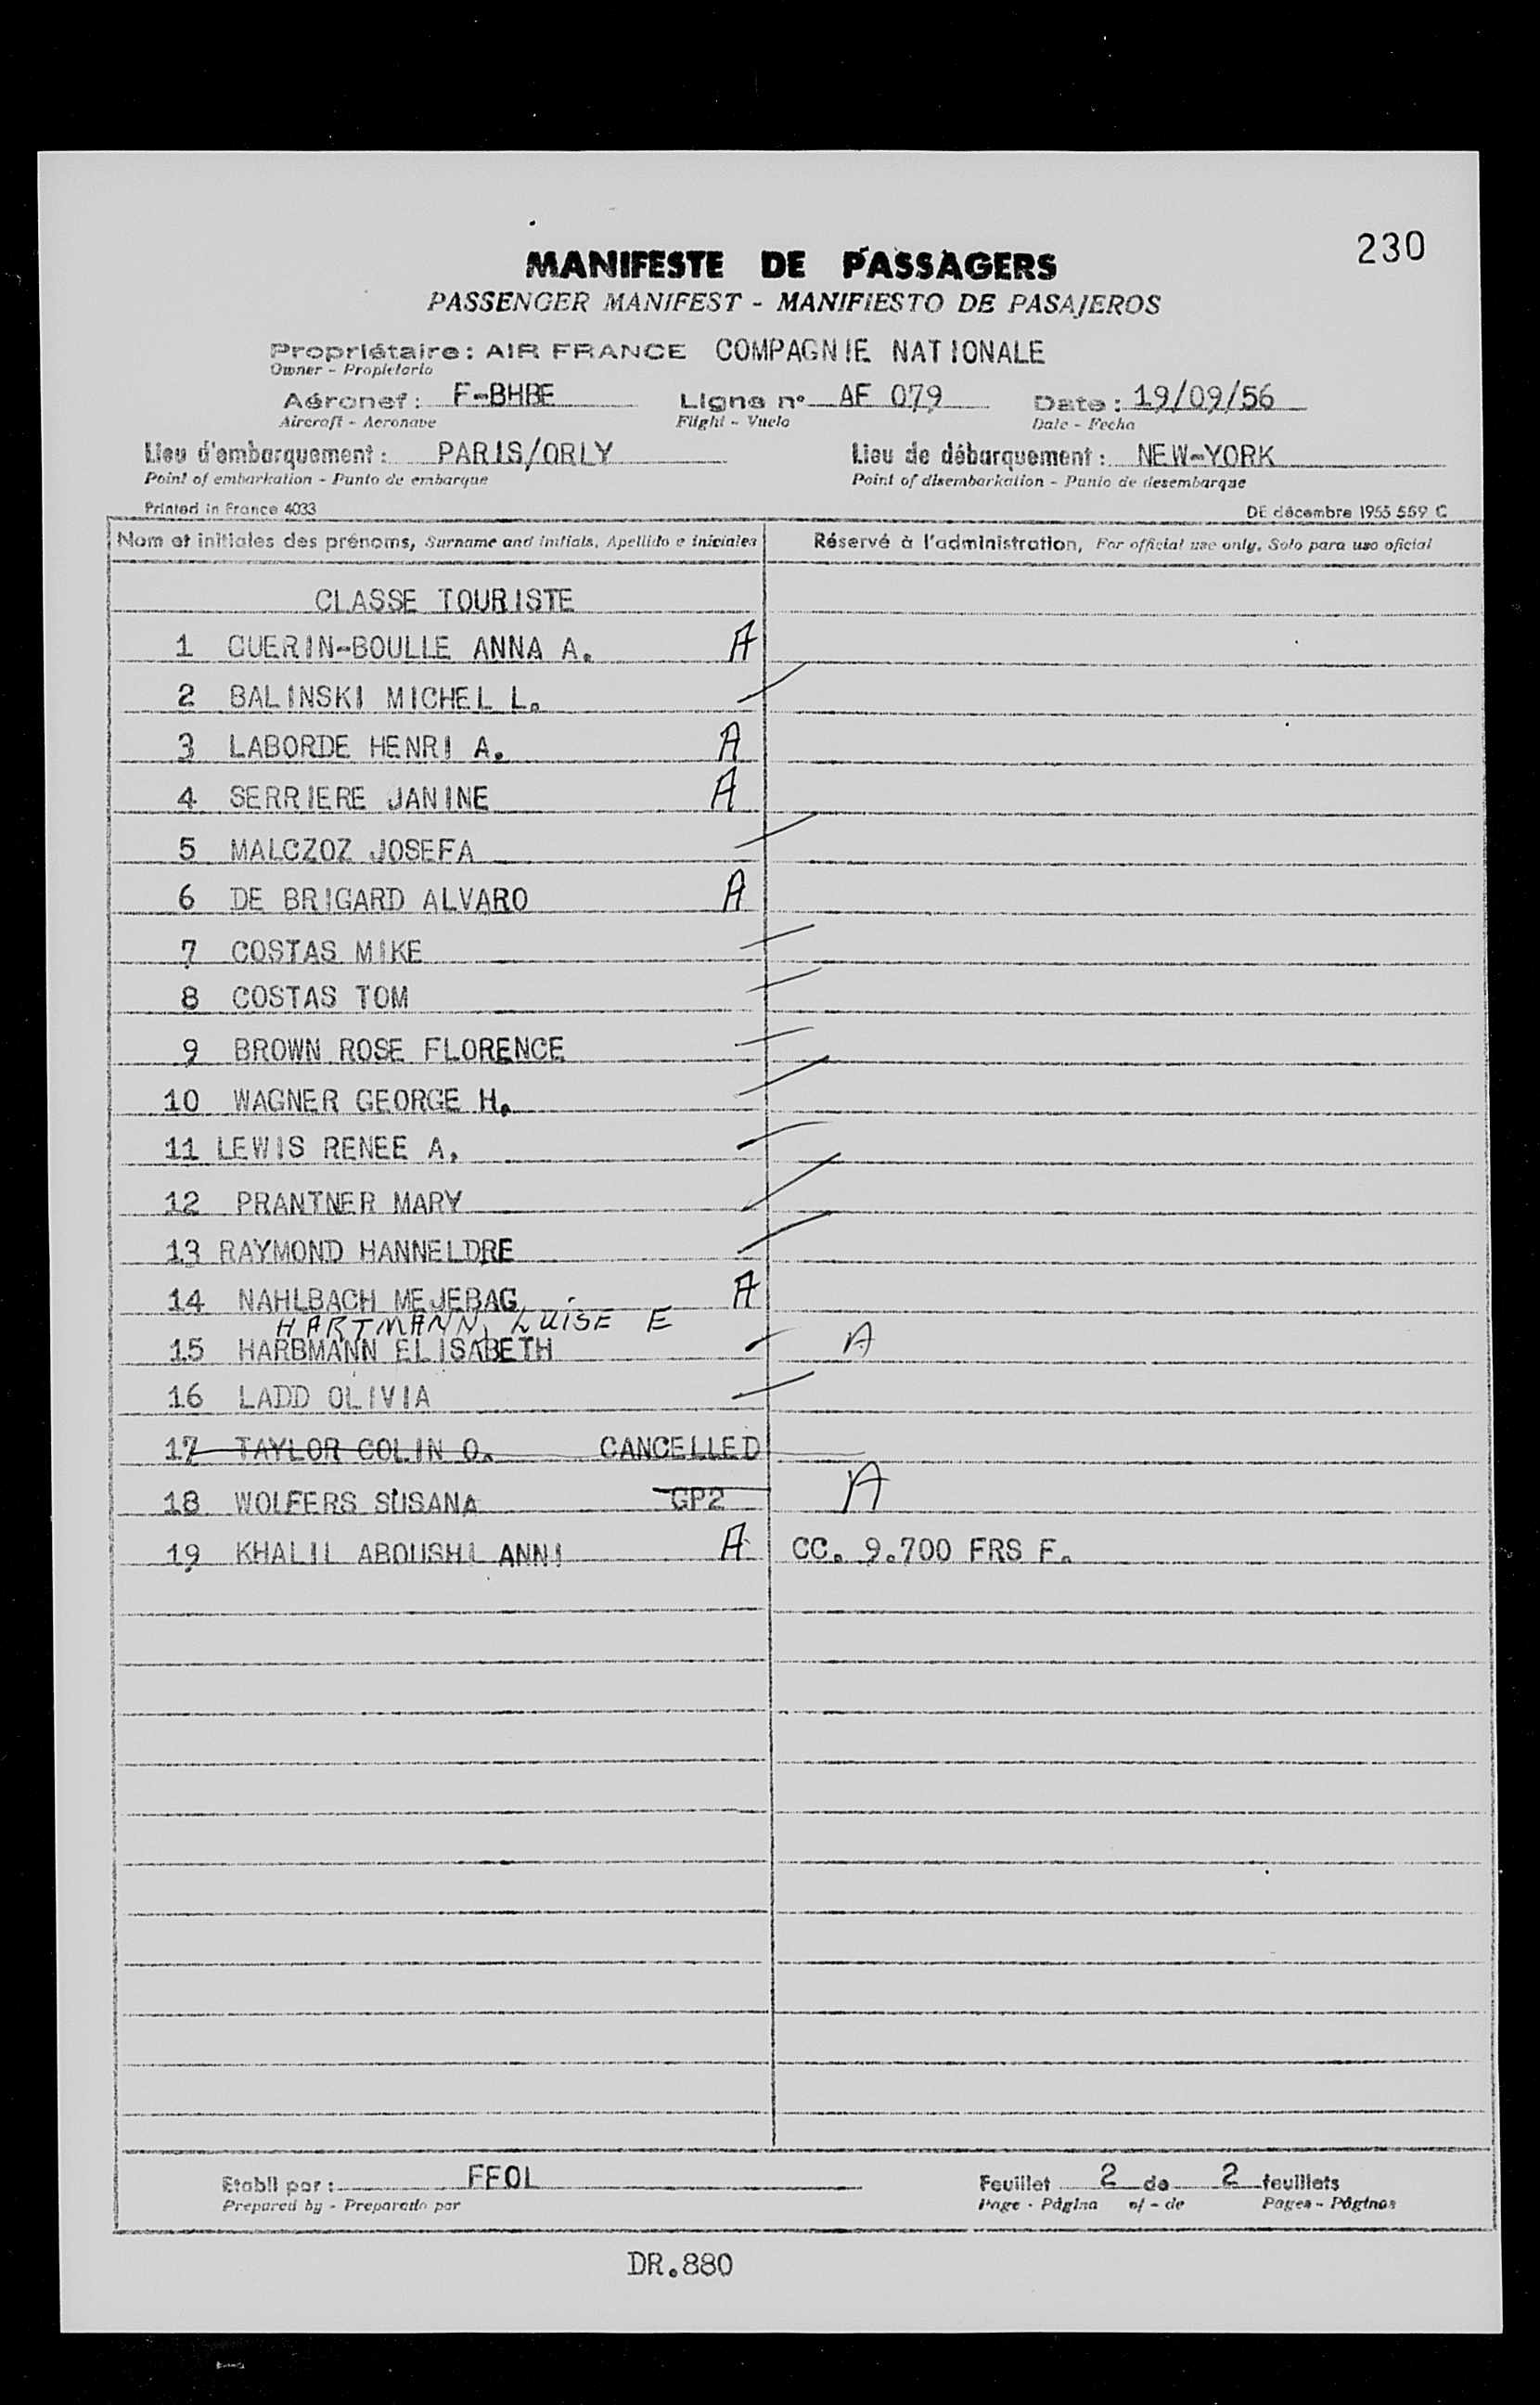 230
MANIFESTE DE PASSAGERS
PASSENGER MANIFEST - MANIFIESTO DE PASAJEROS
Propriétaire: AIR FRANCE COMPAGNIE NATIONALE
Owner - Propietario
Aéronef: F-BHBE Ligne n° AF 079 Date: 19/09/56
Aircraft - Aeronave Flight - Vuelo Date - Fecha
Lieu d'embarquement: PARIS/ORLY Lieu de débarquement: NEW-YORK
Point of embarkation - Punto de embarque Point of disembarkation - Punto de desembarque
Printed in France 4033 DE décembre 1955 559 C
Nom et initiales des prénoms, Surname and initials, Apellido e iniciales Réservé à l'administration, For official use only, Solo para uso oficial
CLASSE TOURISTE
1 GUERIN-BOULLE ANNA A. A
2 BALINSKI MICHEL L.
3 LABORDE HENRI A. A
4 SERRIERE JANINE A
5 MALCZOZ JOSEFA
6 DE BRIGARD ALVARO A
7 COSTAS MIKE
8 COSTAS TOM
9 BROWN ROSE FLORENCE
10 WAGNER GEORGE H.
11 LEWIS RENEE A.
12 PRANTNER MARY
13 RAYMOND HANNELDRE
14 NAHLBACH MEJEBAG A
HARTMANN, LUISE E
15 HARBMANN ELISABETH A
16 LADD OLIVIA
17 TAYLOR COLIN O. CANCELLED
18 WOLFERS SUSANA GP2 A
19 KHALIL ABOUSHI ANNI A CC. 9.700 FRS F.
Etabli par: FFOL Feuillet 2 de 2 feuillets
Prepared by - Preparado por Page - Página of - de Pages - Páginas
DR.880